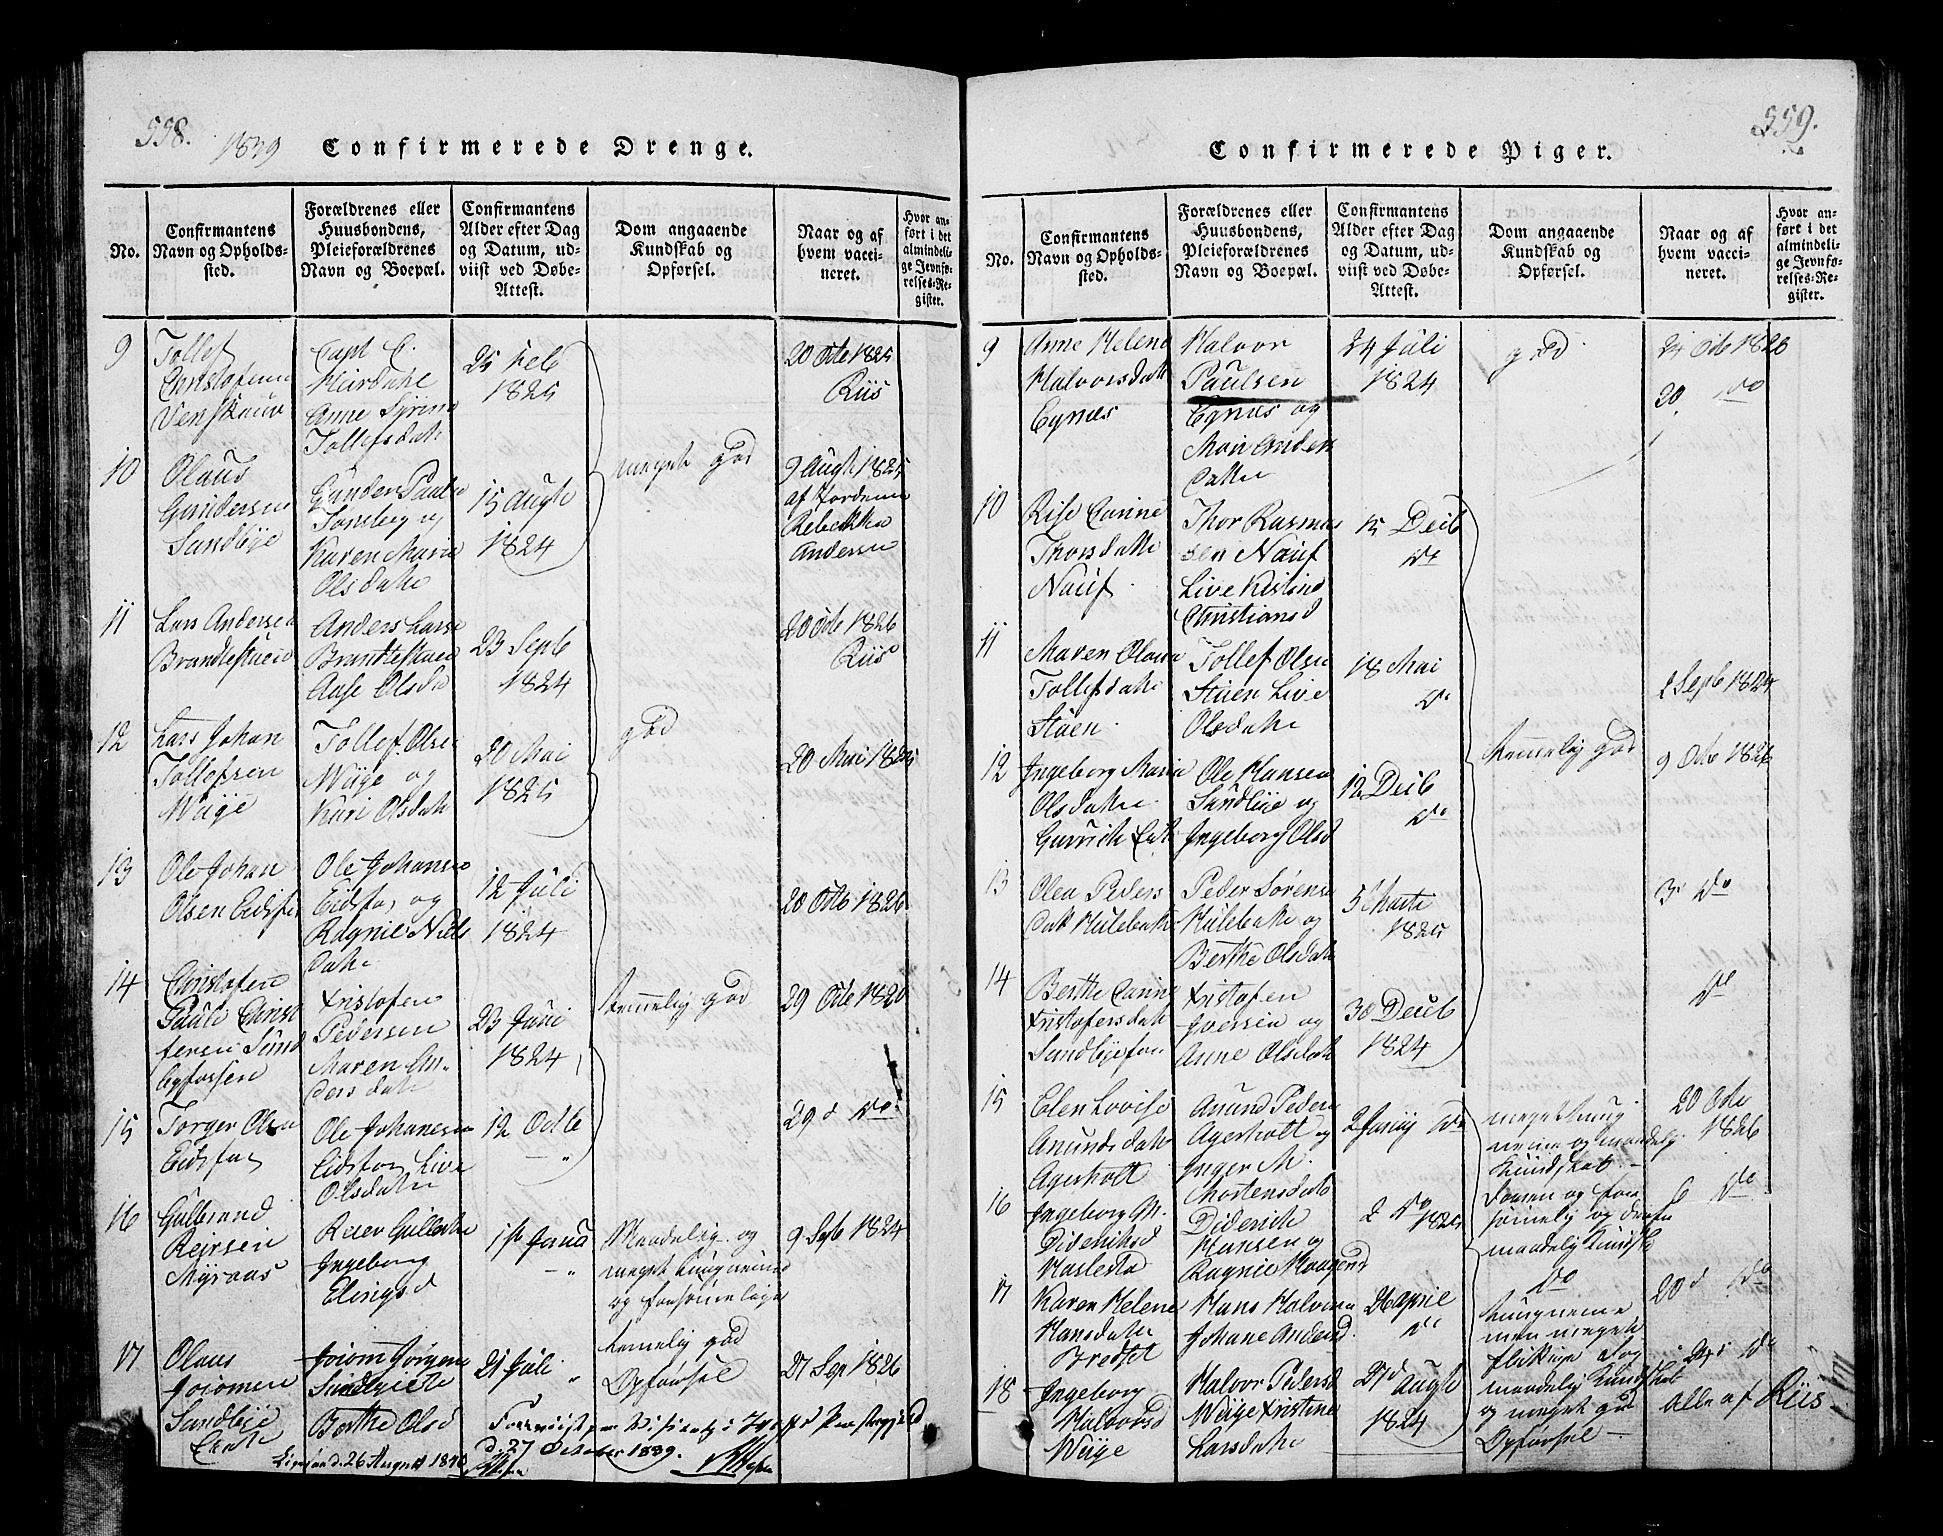 558.
1839
Confirmerede Drenge.
No.
Confirmantens
Navn og Opholds-
sted.
Forældrenes eller
Huusbondens,
Pleieforældrenes
Navn og Boepæl.
Confirmantens
Alder efter Dag
og Datum, ud-
viist ved Døbe-
Attest.
Dom angaaende
Kundskab og
Opførsel.
Naar og af
hvem vacci-
neret.
Hvor an-
ført i det
almindeli-
ge Jevnfø-
relses-Re-
gister.
9
Tollef
Christofersen
Capt C.
Anne
Tollefsdatte
25 Feb
1825
20 Octe 1825
Riis
10
Olaus
Gundersen
Sandbye
Gunder Paulse
Karen Maria
Olsdatte
15 Augte
1824
meget god
9 Augte 1825
af Jordemor
Rebekka
Andersen
11
Lars Andersen
Anders Larse
Aase Olsda
23 Septb
1824
20 Octe 1826
Riis
12
Lars Johan
Tollefsen
Weige
Tollef Olsen
Weige og
Kari Olsdatt
20 Mai
1825
god
20 Mai 1825
13
Ole Johan
Olsen Eidsfos
Ole Johansen
Eidsfos og
Ragnil Niels
datte
12 Juli
1824
20 Octe 1826
14
Christofen
Pauli Christ
fersen Sund
byfossen
Kristofen
Pedersen
Maren An-
dersdatte
23 Juni
1824
temmelig god
29 Octe 1826
15
Torger Olsen
Eidsfos
Ole Johansen
Eidsfos Live
Olsdatte
12 Octb
— "
29 d Do
16
Gulbrand
Reiersen
Myraas
Reier Gulbr
Ingeborg
Elingsd
1ste Janu
— "
Maadelig og
meget tungnemmed
og forsømmelige
9 Sept 1824
17
Olaus
Joiomsen
Sandbye
Eiet
Joiom Jørgens
Sandbyeeie
Berthe Olsd
21 Juli
"
temmelig god
Opførsel
27 Sep 1826
Foreviist paa Visitats i
d. 27 October 1839.
d. 26 August 1840
559.
Confirmerede Piger.
No.
Confirmantens
Navn og Opholds-
sted.
Forældrenes eller
Huusbondens,
Pleieforældrenes
Navn og Boepæl.
Confirmantens
Alder efter Dag
og Datum, ud-
viist ved Døbe-
Attest.
Dom angaaende
Kundskab og
Opførsel.
Naar og af
hvem vacci-
neret.
Hvor an-
ført i det
almindeli-
ge Jevnfø-
relses-Re-
gister.
9
Anne Helene
Halvorsdatte
Eynæs
Halvor
Paulsen
Eynæs og
Mari Anders
datter
24 Juli
1824
god
24 Octb 1826
20 Do
10
Rise Carine
Thorsdatte
Nauf
Thor Rasmus
sen Nauf
Live Kistine
Christiansd
15 Decb
Do
11
Maren Olava
Tollefsdatte
Støen
Tollef Olsen
Støen Live
Olsdatte
18 Mai
Do
1 Septb 1824
12
Ingeborg Maria
Olsdatte
Ole Hansen
Sandbye og
Ingeborg Olsd
12 Decb
Do
temmelig god
9 Octe 1826
13
Olea Peders
dat Hulebak
Peder Sørensen
Hulebake og
Berthe Olsdatt
5 Marts
1825
3 Do
14
Berthe Carine
Kristofersdatt
Sandbyefos
Kristofen
Iversen og
Anne Olsdatt
30 Decb
1824
Do
15
Elen Lovise
Anundsdatt
Agerholt
Anund Peders
Agerholt og
Inger M.
Mortensdatt
2 Janu Do
meget tung
nemme og maadelig
Kundskab
20 Octe
1826
16
Ingeborg M.
Dideriksd
Haslestad
Diderich
Hansen og
Ragnil Haagensd
2 Do
1825
Doven og for
sømmelig og derfor
maadelig Kundsk
6 Do
17
Karen Helene
Hansdatte
Bredset
Hans Halvorsen
Johane Andersd.
26 April
Do
Do
tungnemme
men meget
flittige og
20 d Do
18
Ingeborg
Halvorsd
Weige
Halvor Pedersd
Weige Kristine
Larsdatte
27 d Augte
1824
maadelig Kundskab
og meget god
Opførsel —
24 Do
Alle af Riis